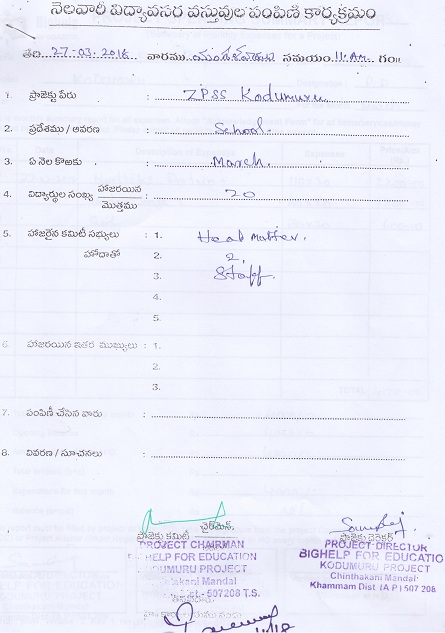 నెలవారీ విద్యావసర వస్తువుల పంపిణీ కార్యక్రమం
తేది 27-03-2018 వారము మంగళవారం సమయం 11 AM గం॥
1. ప్రాజెక్టు పేరు : ZPSS Kodumuru
2. ప్రదేశము / ఆవరణ : School.
3. ఏ నెల కొఱకు : March.
4. విద్యార్థుల సంఖ్య హాజరయిన మొత్తము : 20
5. హాజరైన కమిటీ సభ్యులు : 1. Head Master.
హోదాతో 2. 2,
3. Staff.
4.
5.
6. హాజరయిన ఇతర ముఖ్యులు : 1.
2.
3.
TOTAL
7. పంపిణీ చేసిన వారు :
8. వివరణ / సూచనలు :
ప్రాజెక్టు కమిటీ చైర్‌మెన్.
ప్రాజెక్టు డైరెక్టర్
PROJECT CHAIRMAN
HELP FOR EDUCATION
KODUMURU PROJECT
Mandal
507208 T.S.
PROJECT DIRECTOR
BIGHELP FOR EDUCATION
KODUMURU PROJECT
Chinthakani Mandal
Khammam Dist (A P) 507 208